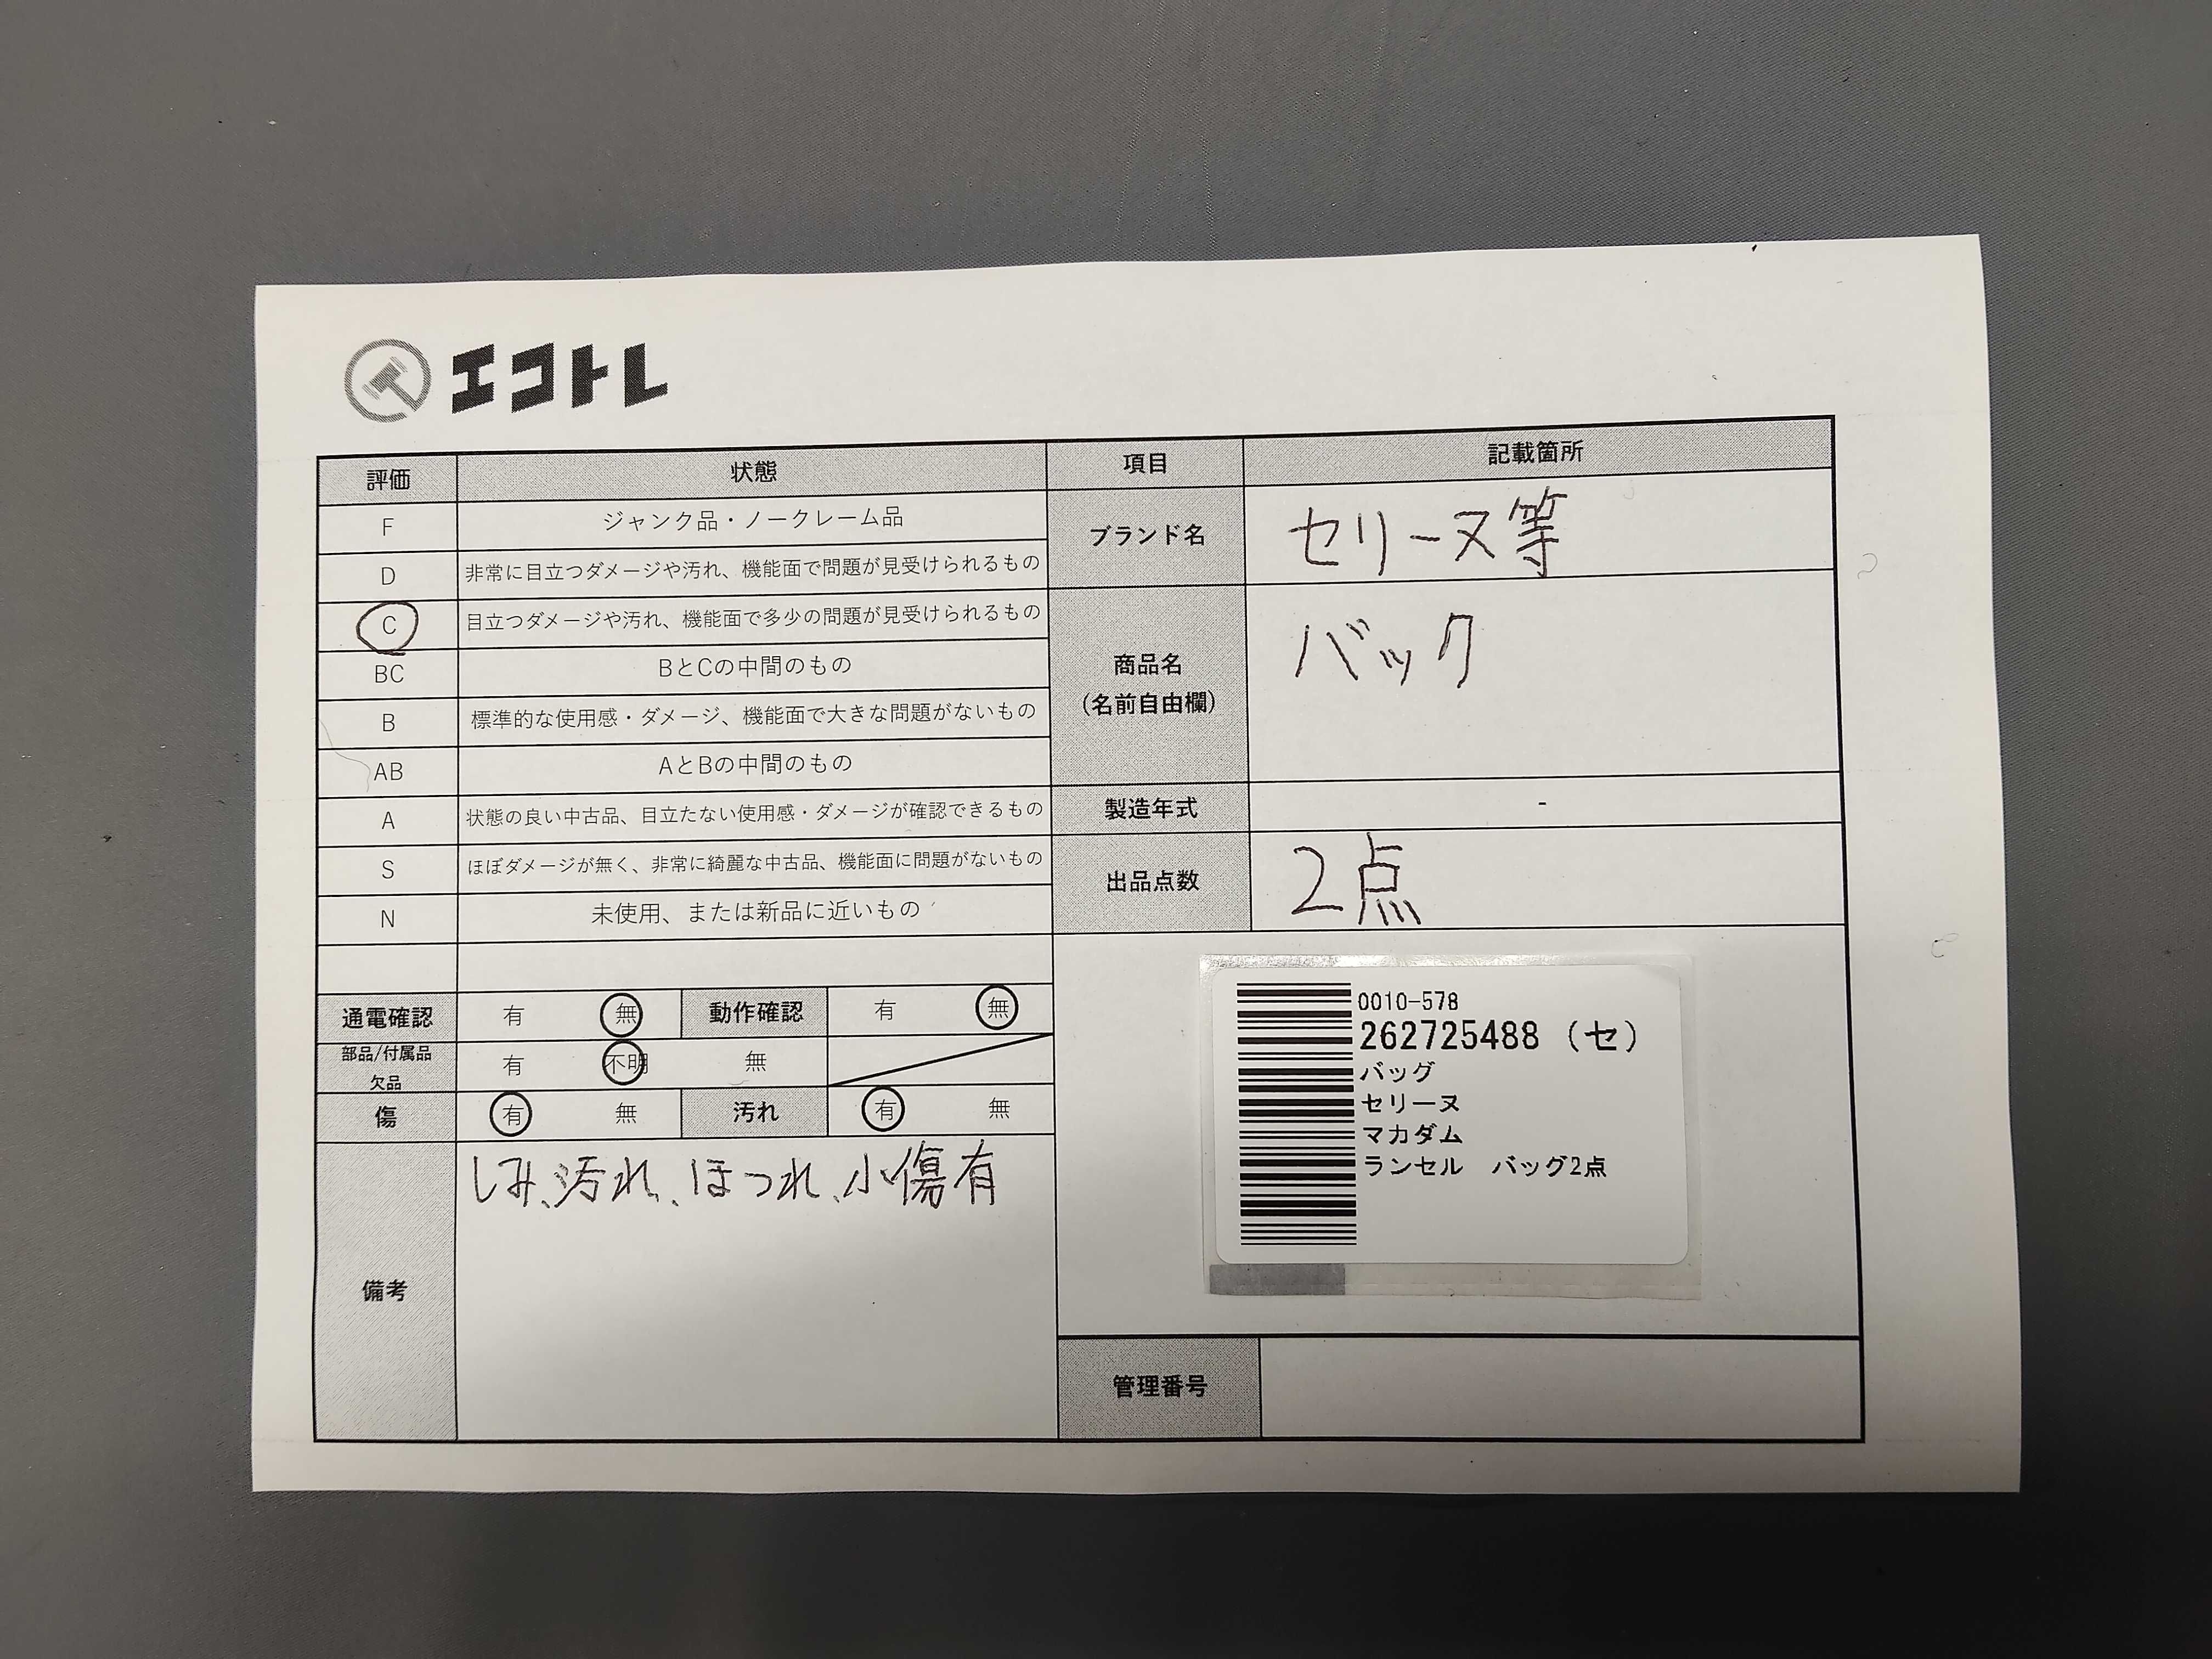 エコトレ
評価 状態 項目 記載箇所
F ジャンク品・ノークレーム品
D 非常に目立つダメージや汚れ、機能面で問題が見受けられるもの
C 目立つダメージや汚れ、機能面で多少の問題が見受けられるもの
BC BとCの中間のもの
B 標準的な使用感・ダメージ、機能面で大きな問題がないもの
AB AとBの中間のもの
A 状態の良い中古品、目立たない使用感・ダメージが確認できるもの
S ほぼダメージが無く、非常に綺麗な中古品、機能面に問題がないもの
N 未使用、または新品に近いもの
ブランド名 セリーヌ等
商品名 バック
(名前自由欄)
製造年式 -
出品点数 2点
通電確認 有 無 動作確認 有 無
部品/付属品
欠品 有 不明 無
傷 有 無 汚れ 有 無
備考 しみ、汚れ、ほつれ、小傷有
0010-578
262725488 (セ)
バッグ
セリーヌ
マカダム
ランセル バッグ2点
管理番号